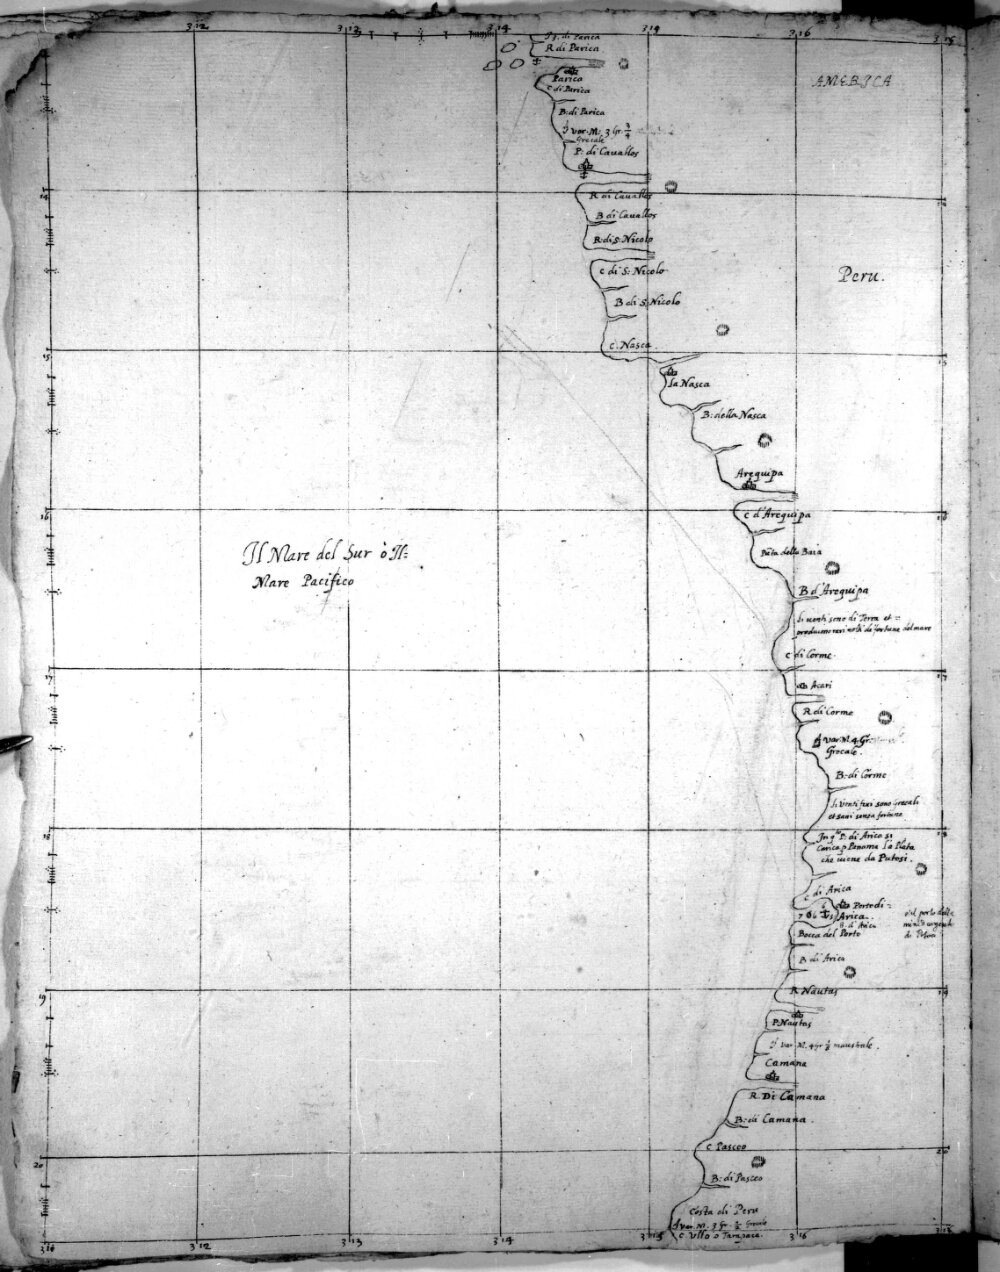 312 313 314 314 316
I: di Parica
R di Parica
AMERICA
Parica
C di Parica
B: di Parica
var. M. 3 Gr. 3/4
Grecale
P: di Cauallos
R di Cauallos
B di Cauallos
R: di S: Nicolo
C di S: Nicolo
Peru.
B di S: Nicolo
C. Nasca
15 15
la Nasca
B: della Nasca
Arequipa
16
C d'Arequipa
Il Mare del Sur ò Il=
Mare Pacifico
Baia
B d'Arequipa
li uenti sono di Terra et=
di fortune del mare
C di Corme.
17 17
Acari
R di Corme
var M. 4 Gr.
Grecale.
B: di Corme
li Venti sono Grecali
et sani senza fortuna
18 18
In q.to P. di Arica si
Carica p Panama la Plata
che uiene da Putosi.
C di Arica
Porto di=
Arica.
7 6
B. d'Arica
Bocca del Porto
B di Arica
R Nautas
19 19
P. Nautas
var. M. 4 gr 1/2 maestrale.
Camana
R. Di Camana
B: di Camana.
C Pasceo
20 20
B: di Pasceo
Costa di Peru
var. M. 3 Gr. 1/2 Grecale
C. Ullo o Tarapaca.
311 312 313 314 315 316